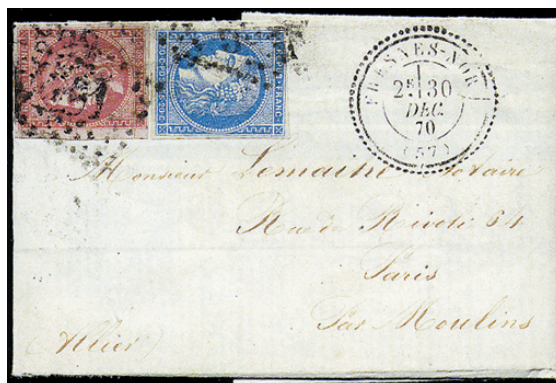 FRESNES-NORD
2E 30
DEC.
70
(57)
Monsieur Lemaitre Notaire
Rue de Rivoli 64
Paris
Par Moulins
(Allier)